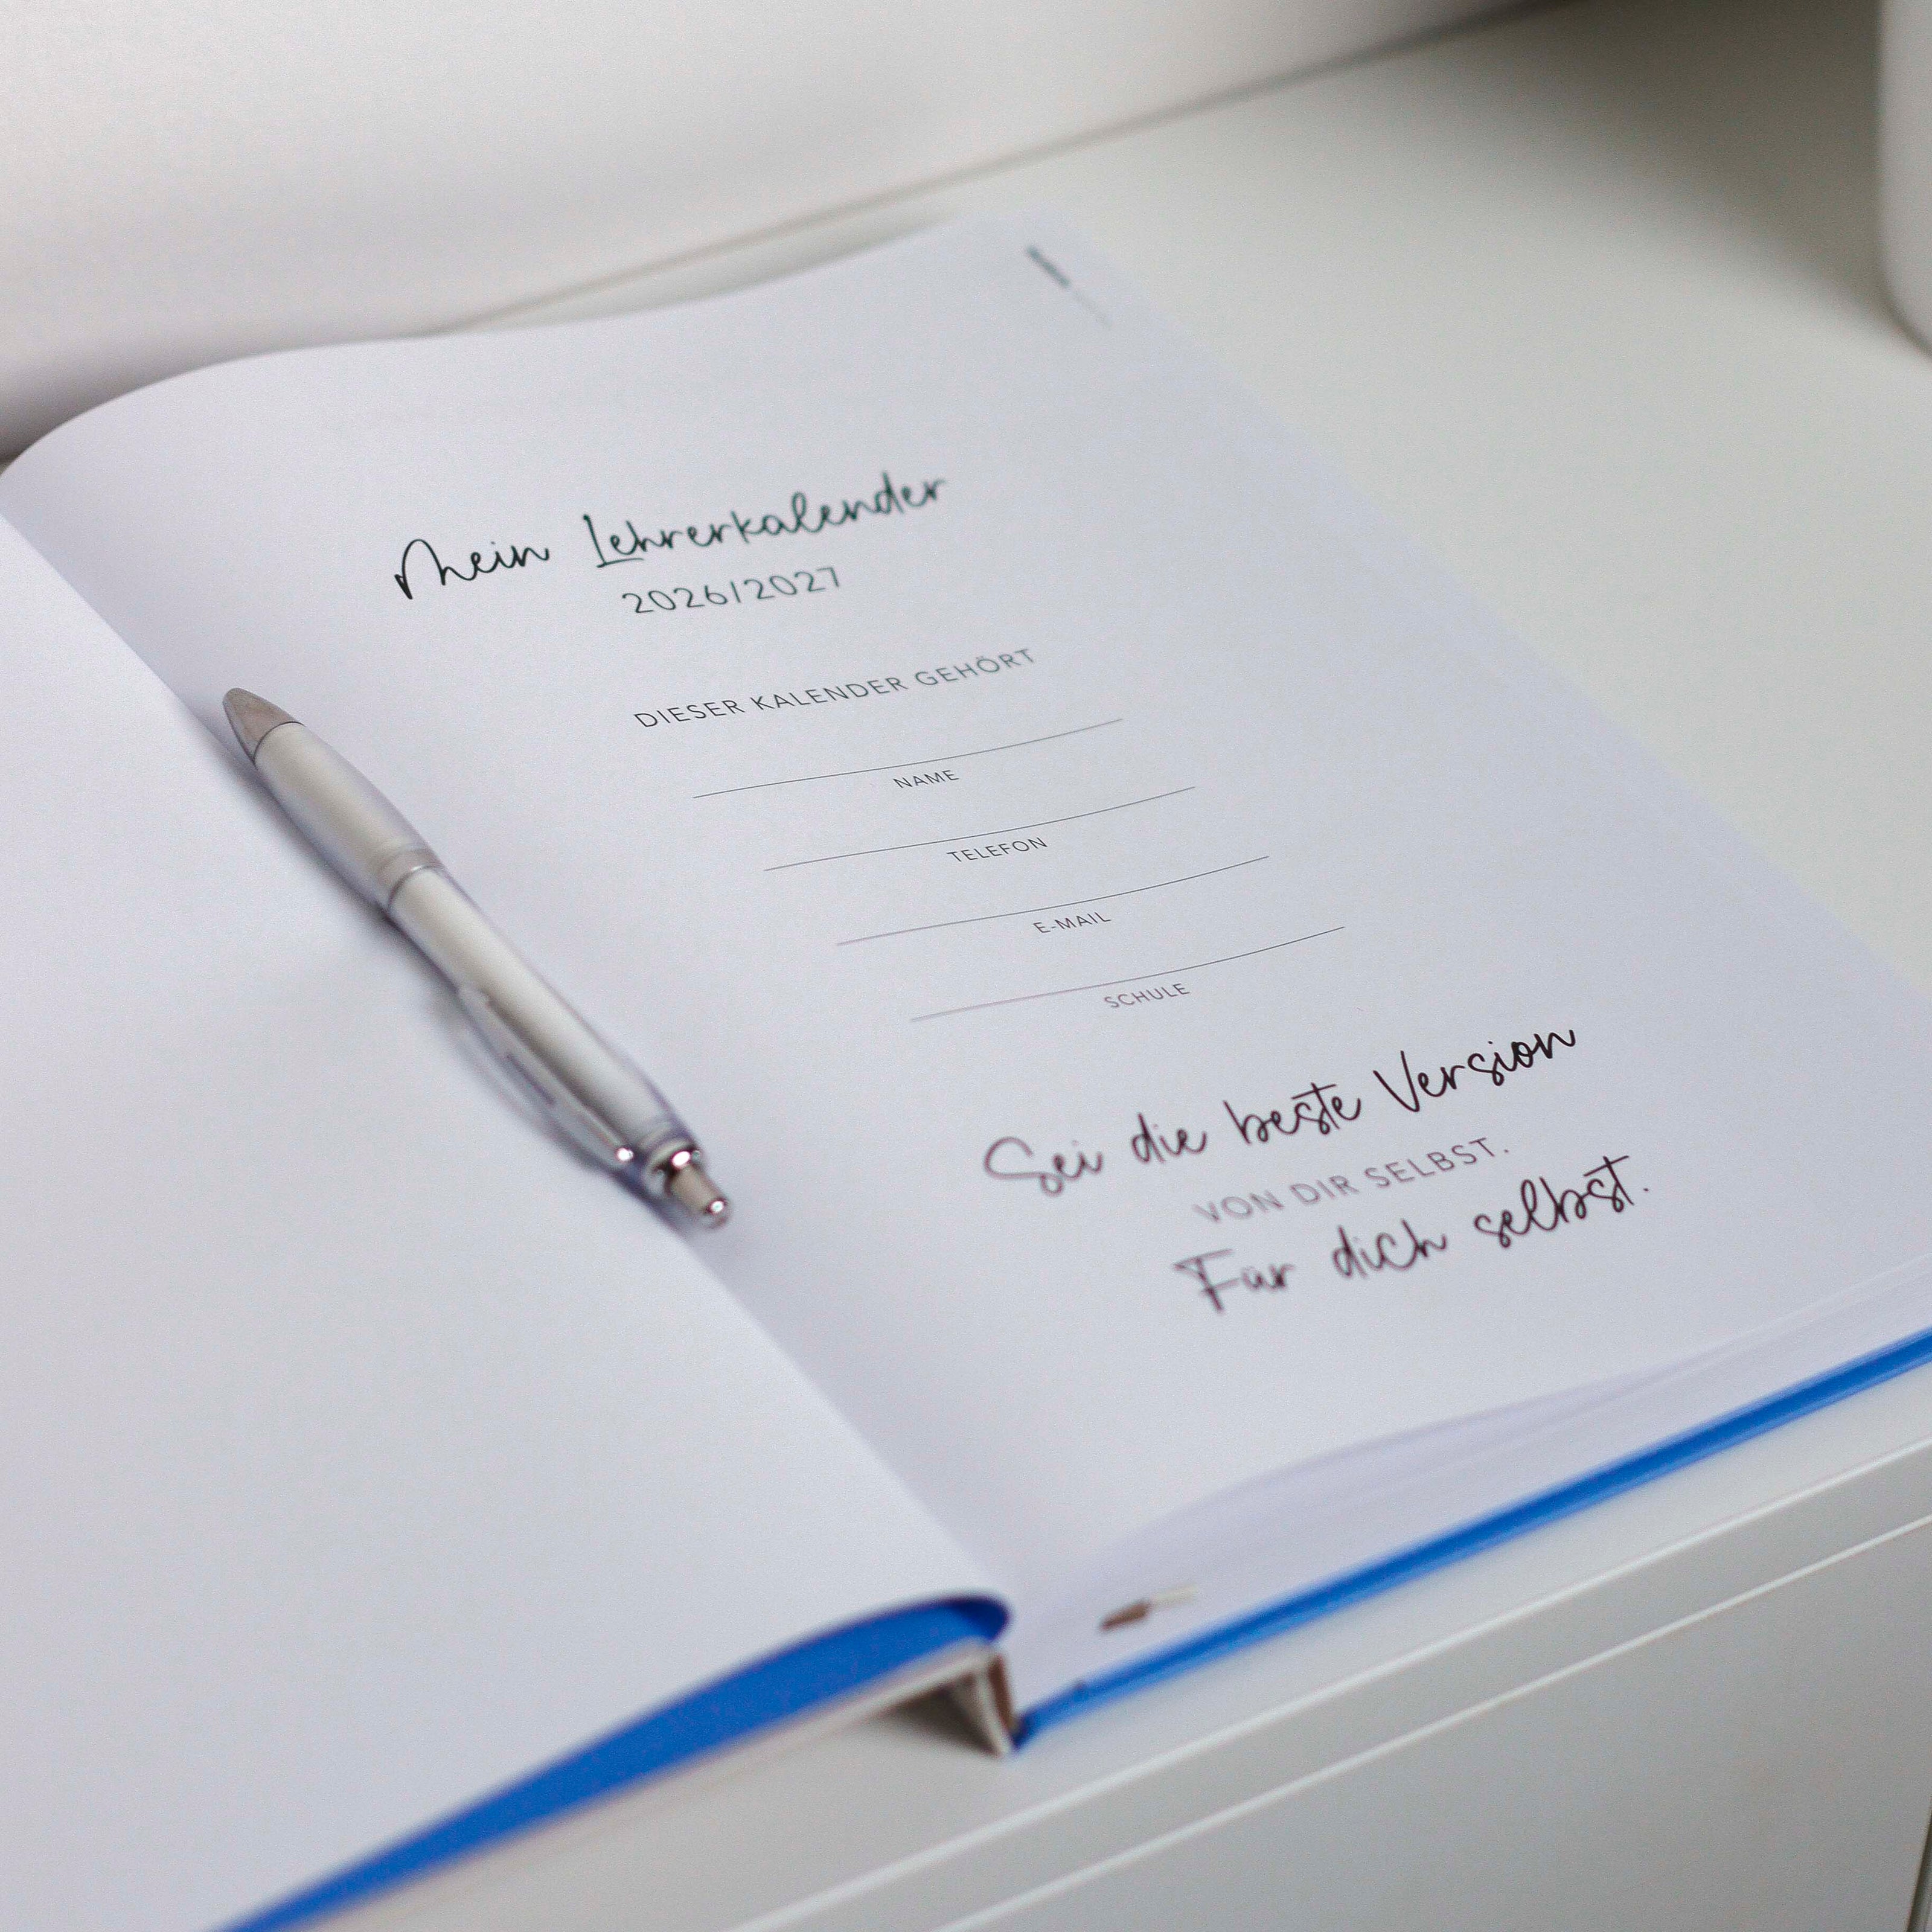 Mein Lehrerkalender
2026/2027
DIESER KALENDER GEHÖRT
NAME
TELEFON
E-MAIL
SCHULE
Sei die beste Version
VON DIR SELBST.
Für dich selbst.